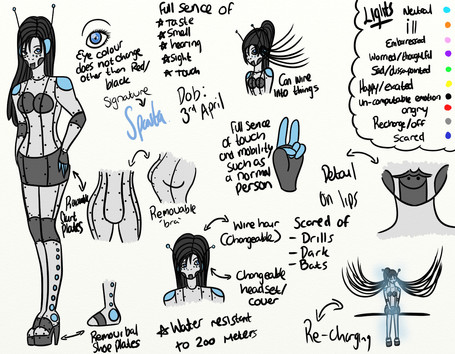 Full sence of
★ taste
★ Small
★ hearing
★ Sight
★ Touch
Eye colour
does not change
other than Red/
black
Signature
Sparta
Dob:
3rd April
Can wire
into things
Lights
Neutral
ill
Embarressed
Worried/thoughtful
Sad/dissapointed
Happy/excited
un-computable emotion
angry
Recharge/off
Scared
Full sense
of touch
and mobility
such as
a normal
person
Detail
on lips
Removable
'bra'
plates
Wire hair
(Changeable)
Changeable
headset/
cover
Scared of
- Drills
- Dark
- Bats
shoe plates
★ Water resistant
to 200 meters
Re-Charging